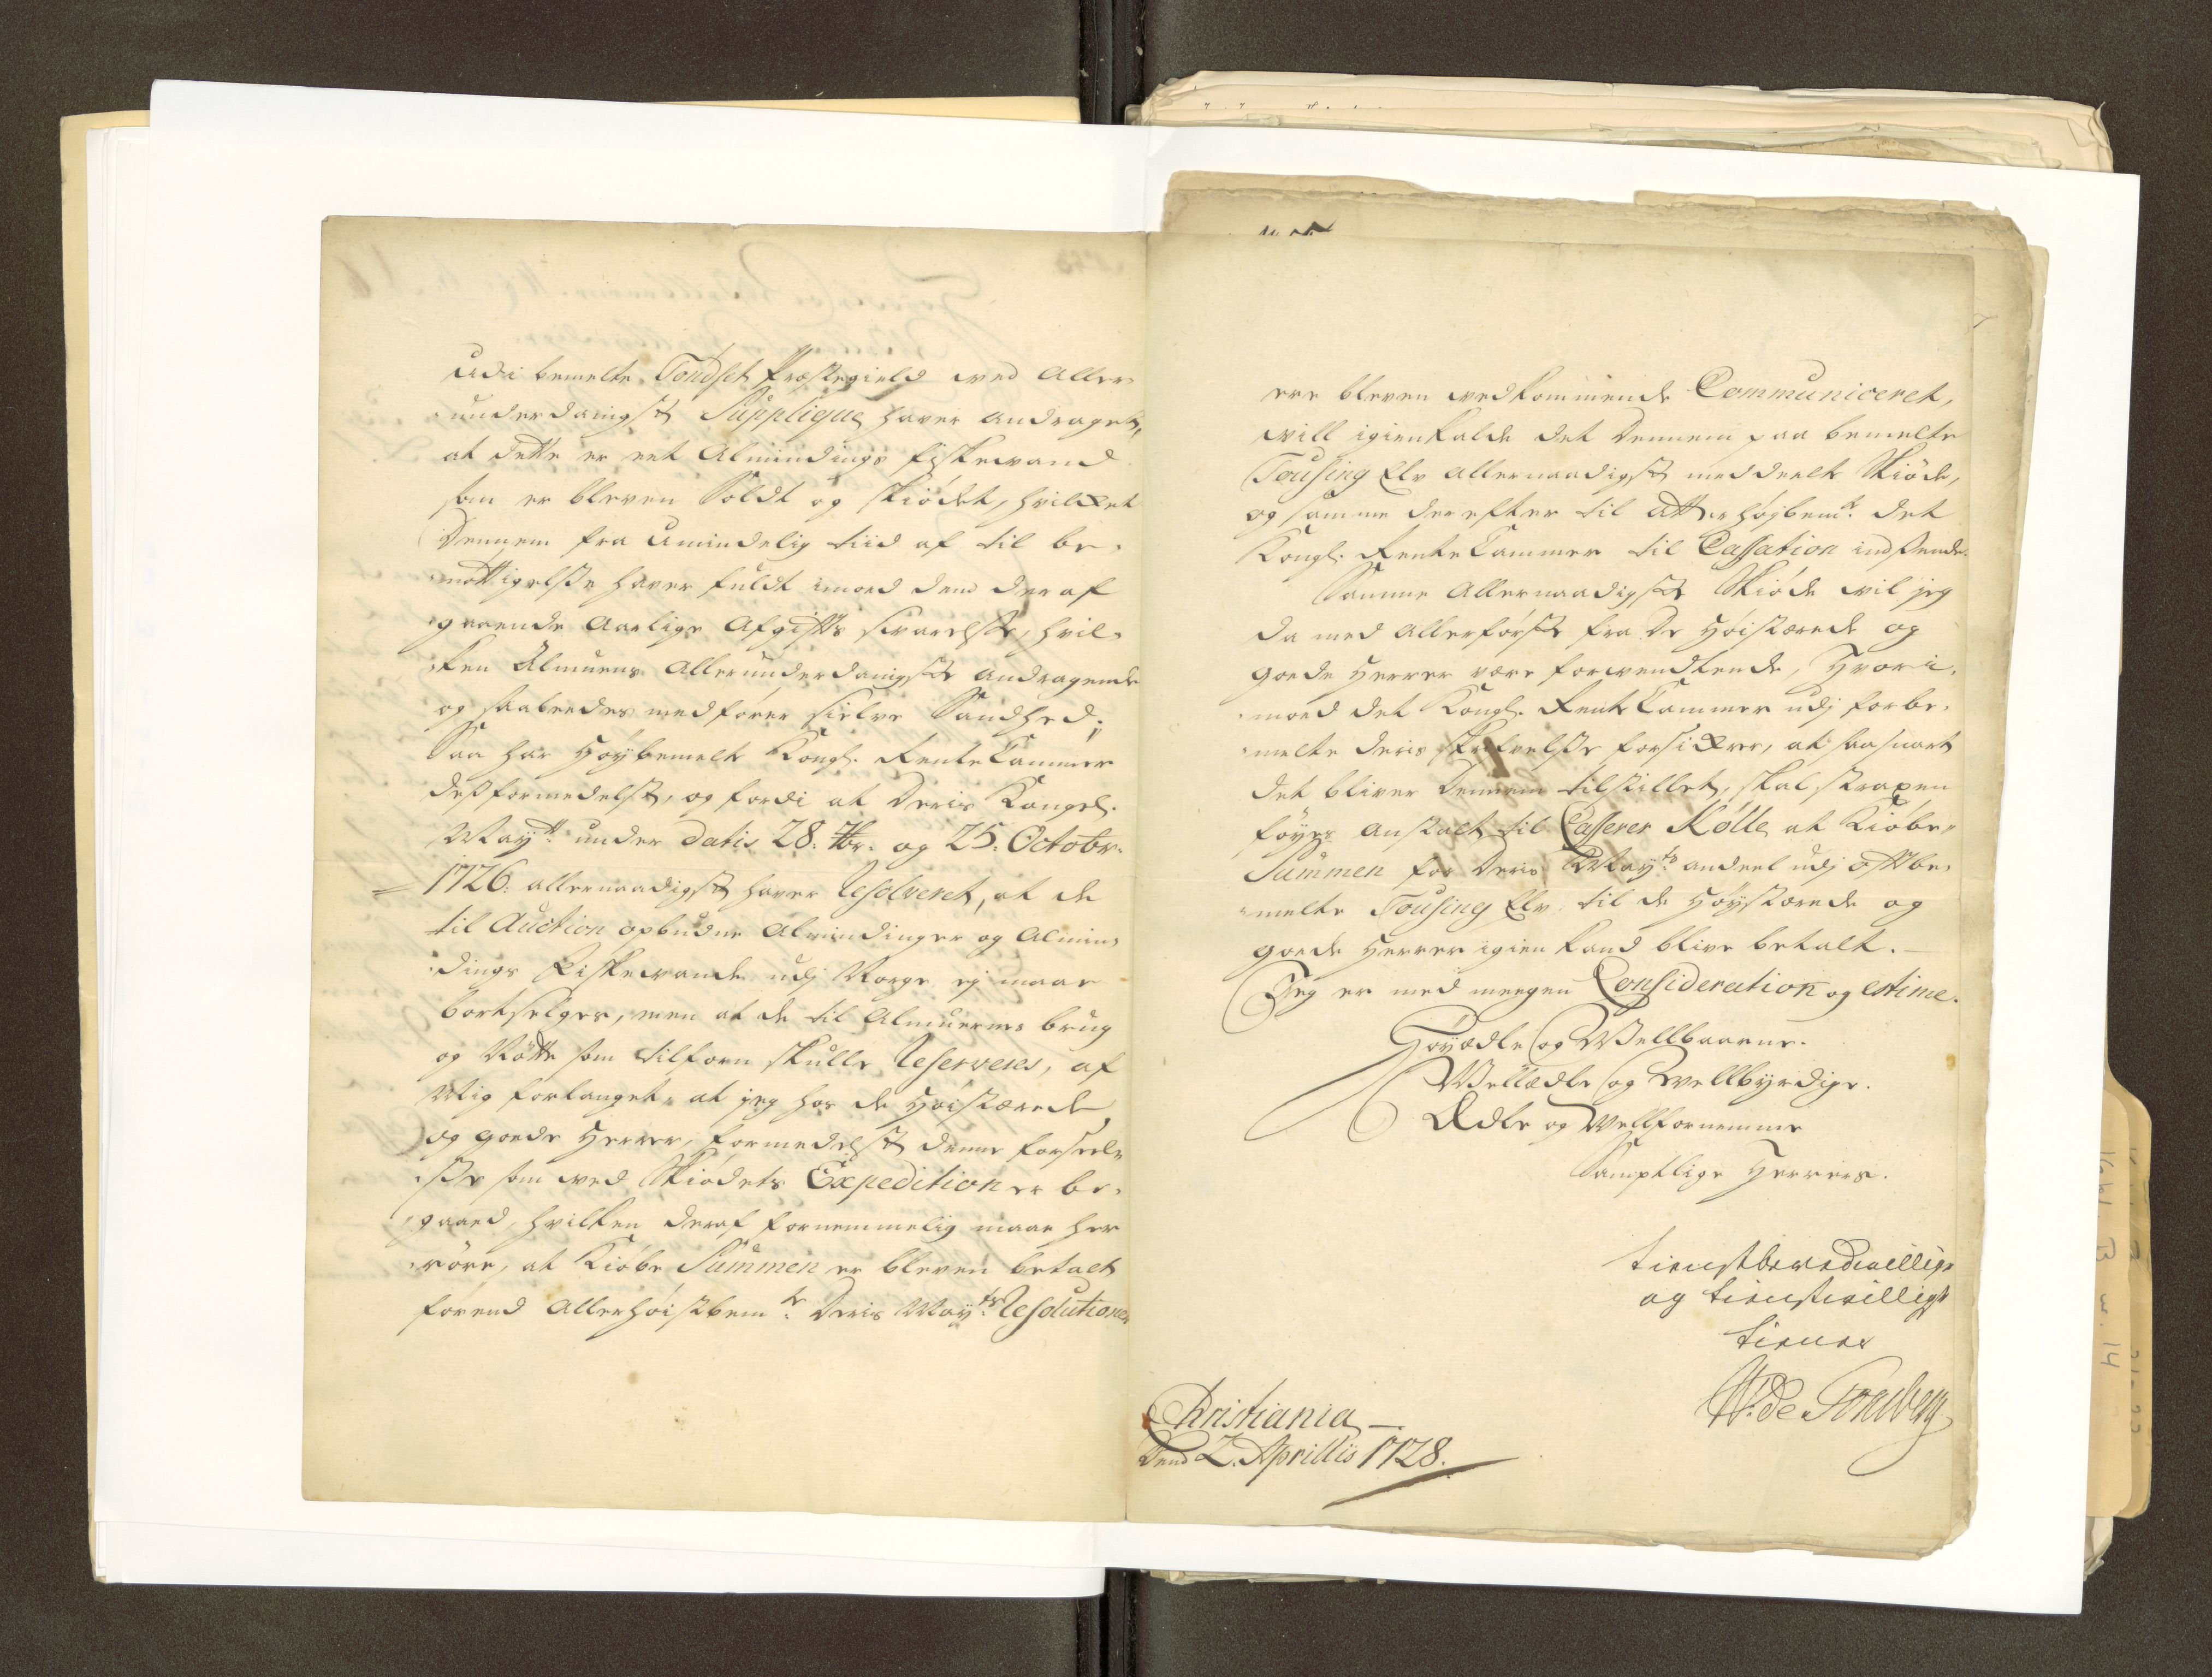 udi bemelte Tondset Præstegield ved Aller-
underdanigst Supplique haver andraget,
at dette er eet Almindings fiskevand
som er bleven Soldt og skiödet, hvilket
Dennem fra Umindelig tiid af til be-
nöttigelse haver fuldt imod dend deraf
gaaende Aarlige Afgiffts svarelse, hvil-
ken Almuens Allerunderdanigste andragende
og saaleedes medförer sielve Sandhed;
Saa har Höybemelte Kongl. RenteCammer
desformedelst, og fordi at Deris Kongel.
Mayts under datis 28. 7br. og 25. Octobr.
1726. allernaadigst haver Resolveret, at de
til Auction opbudne Almindinger og Almin-
dings Fiskevande udj Norge ej maae
bortselges, men at de til Almuernes brug
og Nötte som tilforn skulle Reserveres, af
Mig forlanget, at jeg hos de Höistærede
og goede Herrer, formedelst denne forseel-
se som ved Skiödets Expedition er be-
gaaed, hvilken deraf fornemmelig maae her
röre, at Kiöbe Summen er bleven betalt
förend Allerhöistbemte Deris Mayts Resolutioner
ere bleven vedkommende Communiceret,
vill igienkalde det Dennem paa bemelte
Tousing Elv allernaadigst meddeelte Skiöde,
og samme derefter til Atterhöjbemte det
Kongl. RenteCammer til Cassation indsende.
Samme Allernaadigste Skiöde vil jeg
da med allerförste fra De Höistærede og
goede Herrer være forvendtende, Hvori-
mod det Kongl. RenteCammer udj forbe-
melte deris skrivelse forsikrer, at saasnart
det bliver Dennem tilstillet, skal straxen
föyes Anstalt til Casserer Kölle, at Kiöbe-
Summen for Deris Mayts andeel udj offtbe-
melte Tousing Elv til de Höystærede og
goede Herrer igien kand blive betalt. —
Jeg er med meegen Consideration og estime.
Höyædle og Wellbaarne.
Wellædle og Wellbyrdige.
Ædle og Wellfornemme
Samptlige Herrers.
tienstberedvillige
og tienstvilligste
tiener
W. de Tonsberg
Christiania —
Dend 2. Aprillis 1728.